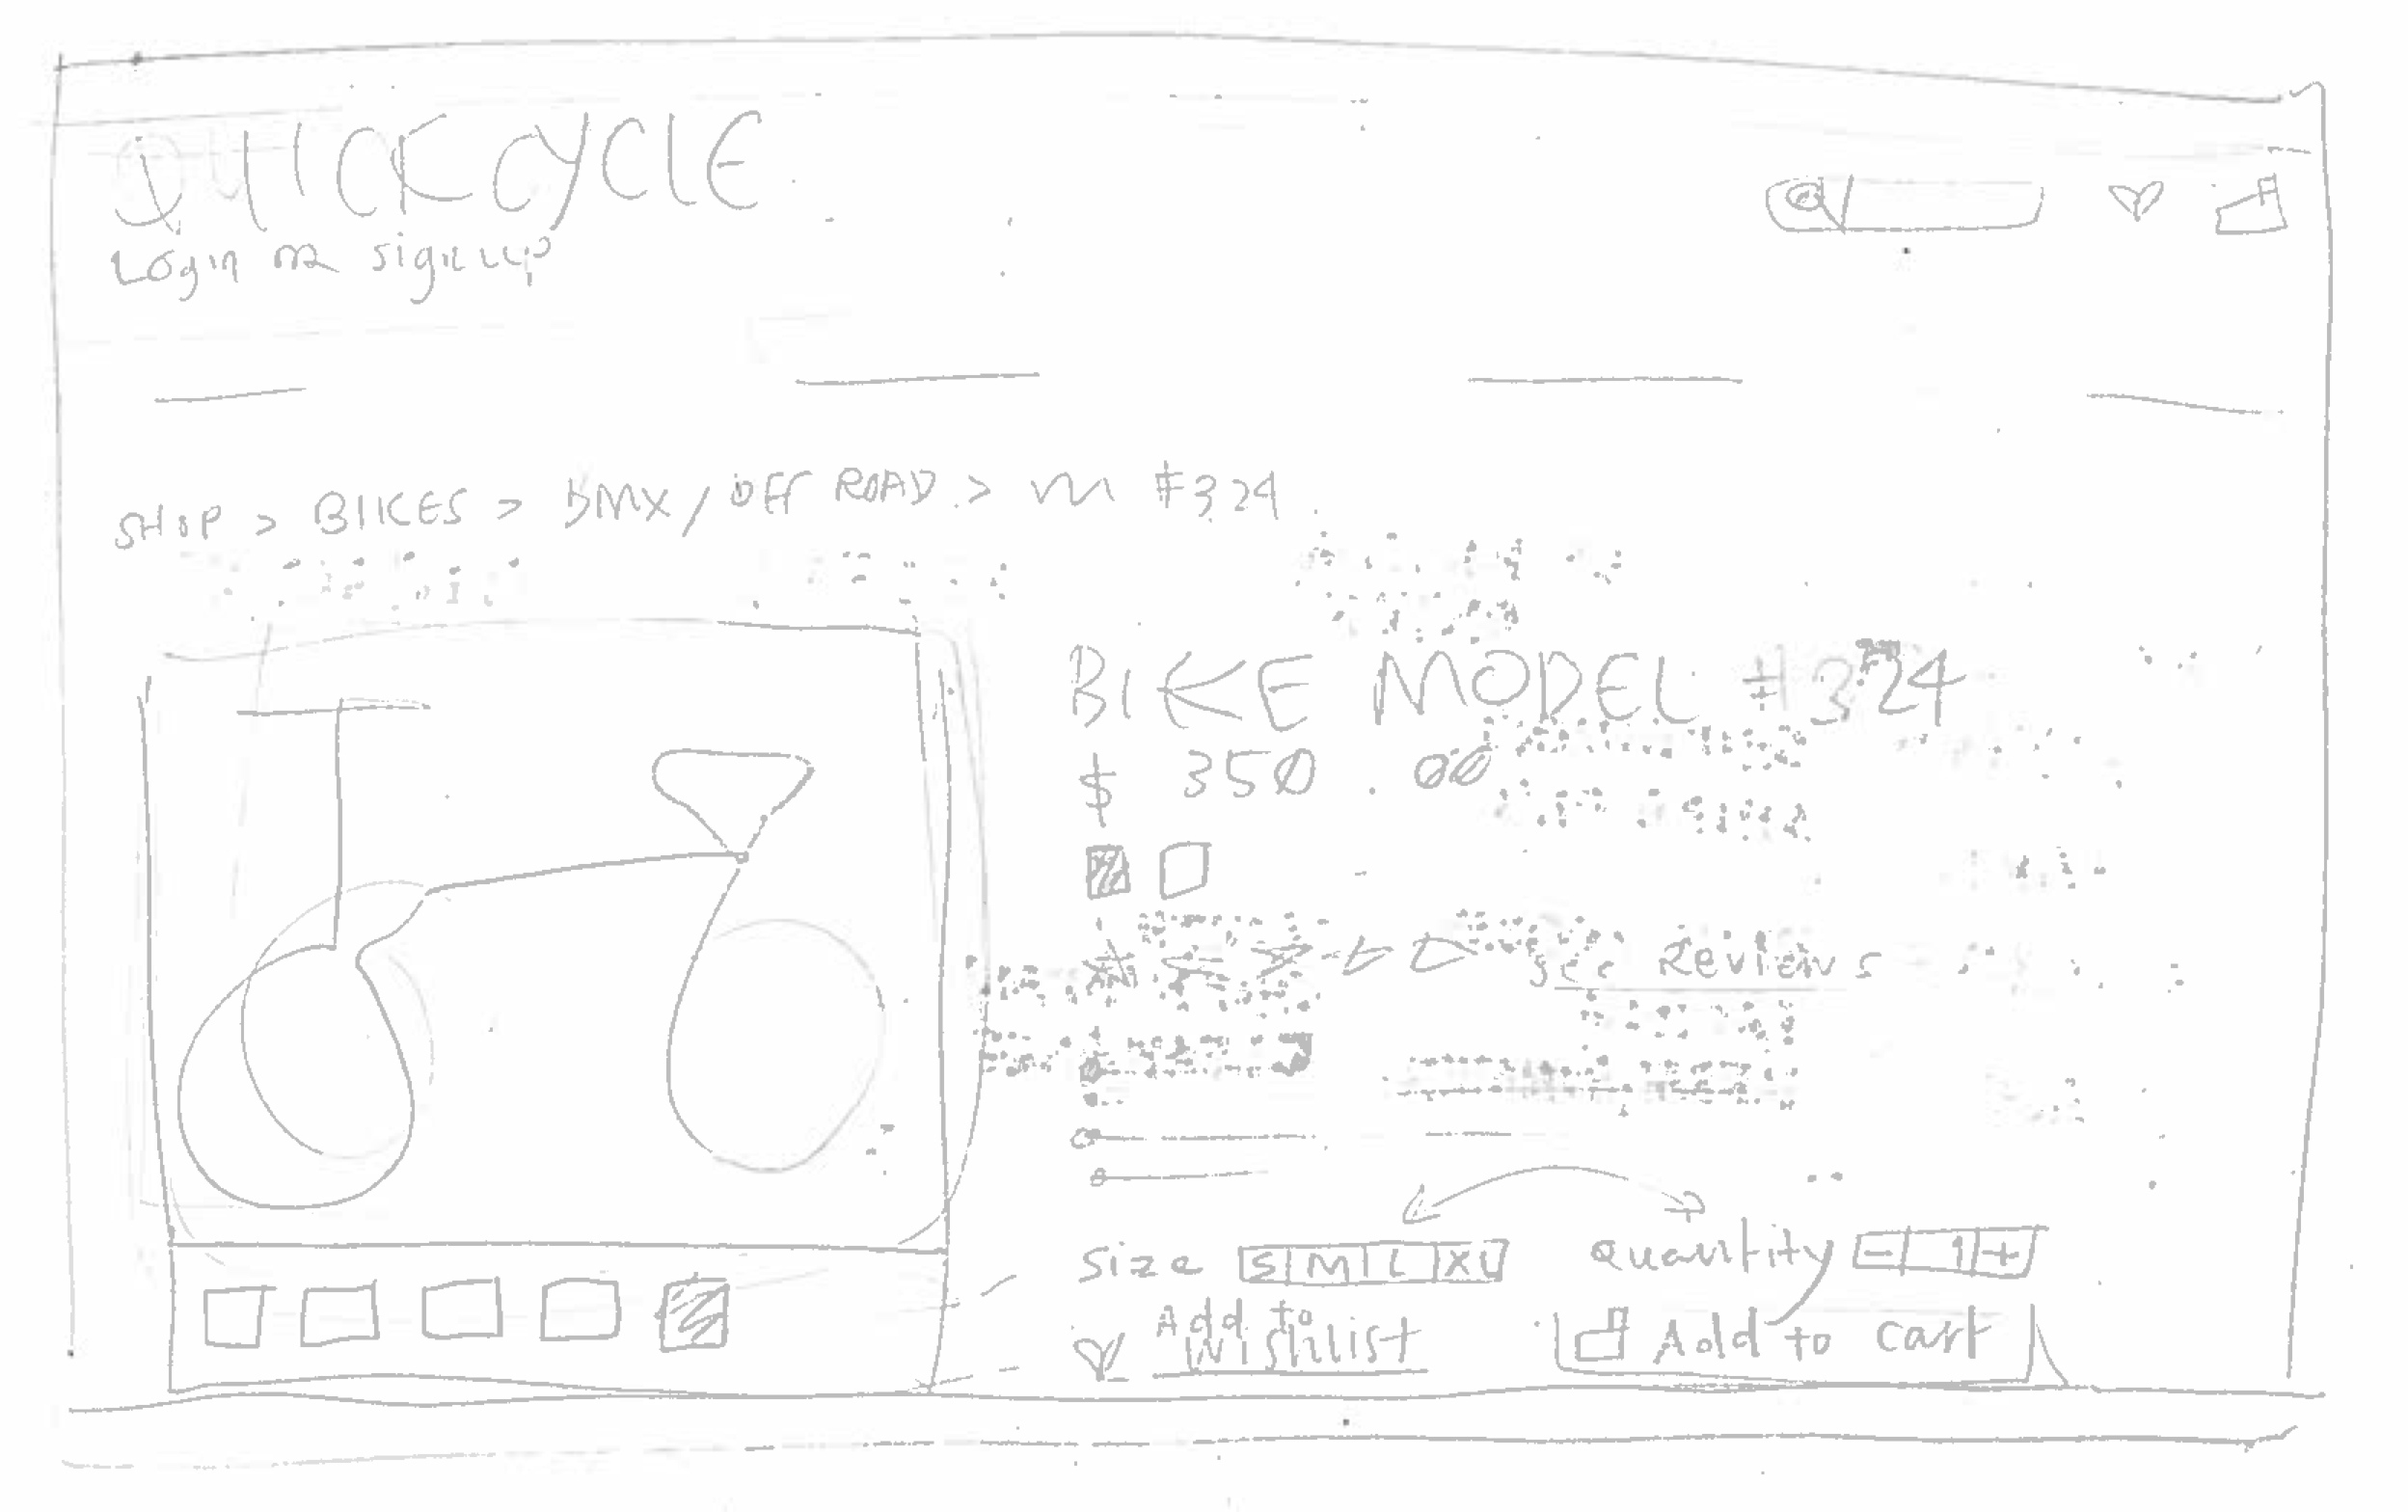 QUICKCYCLE
Login or sign up
SHOP > BIKES > BMX / OFF ROAD > M #324
BIKE MODEL #324
$ 350.00
See Reviews
Size S M L XL Quantity - 1 +
Add to Wishlist
Add to cart